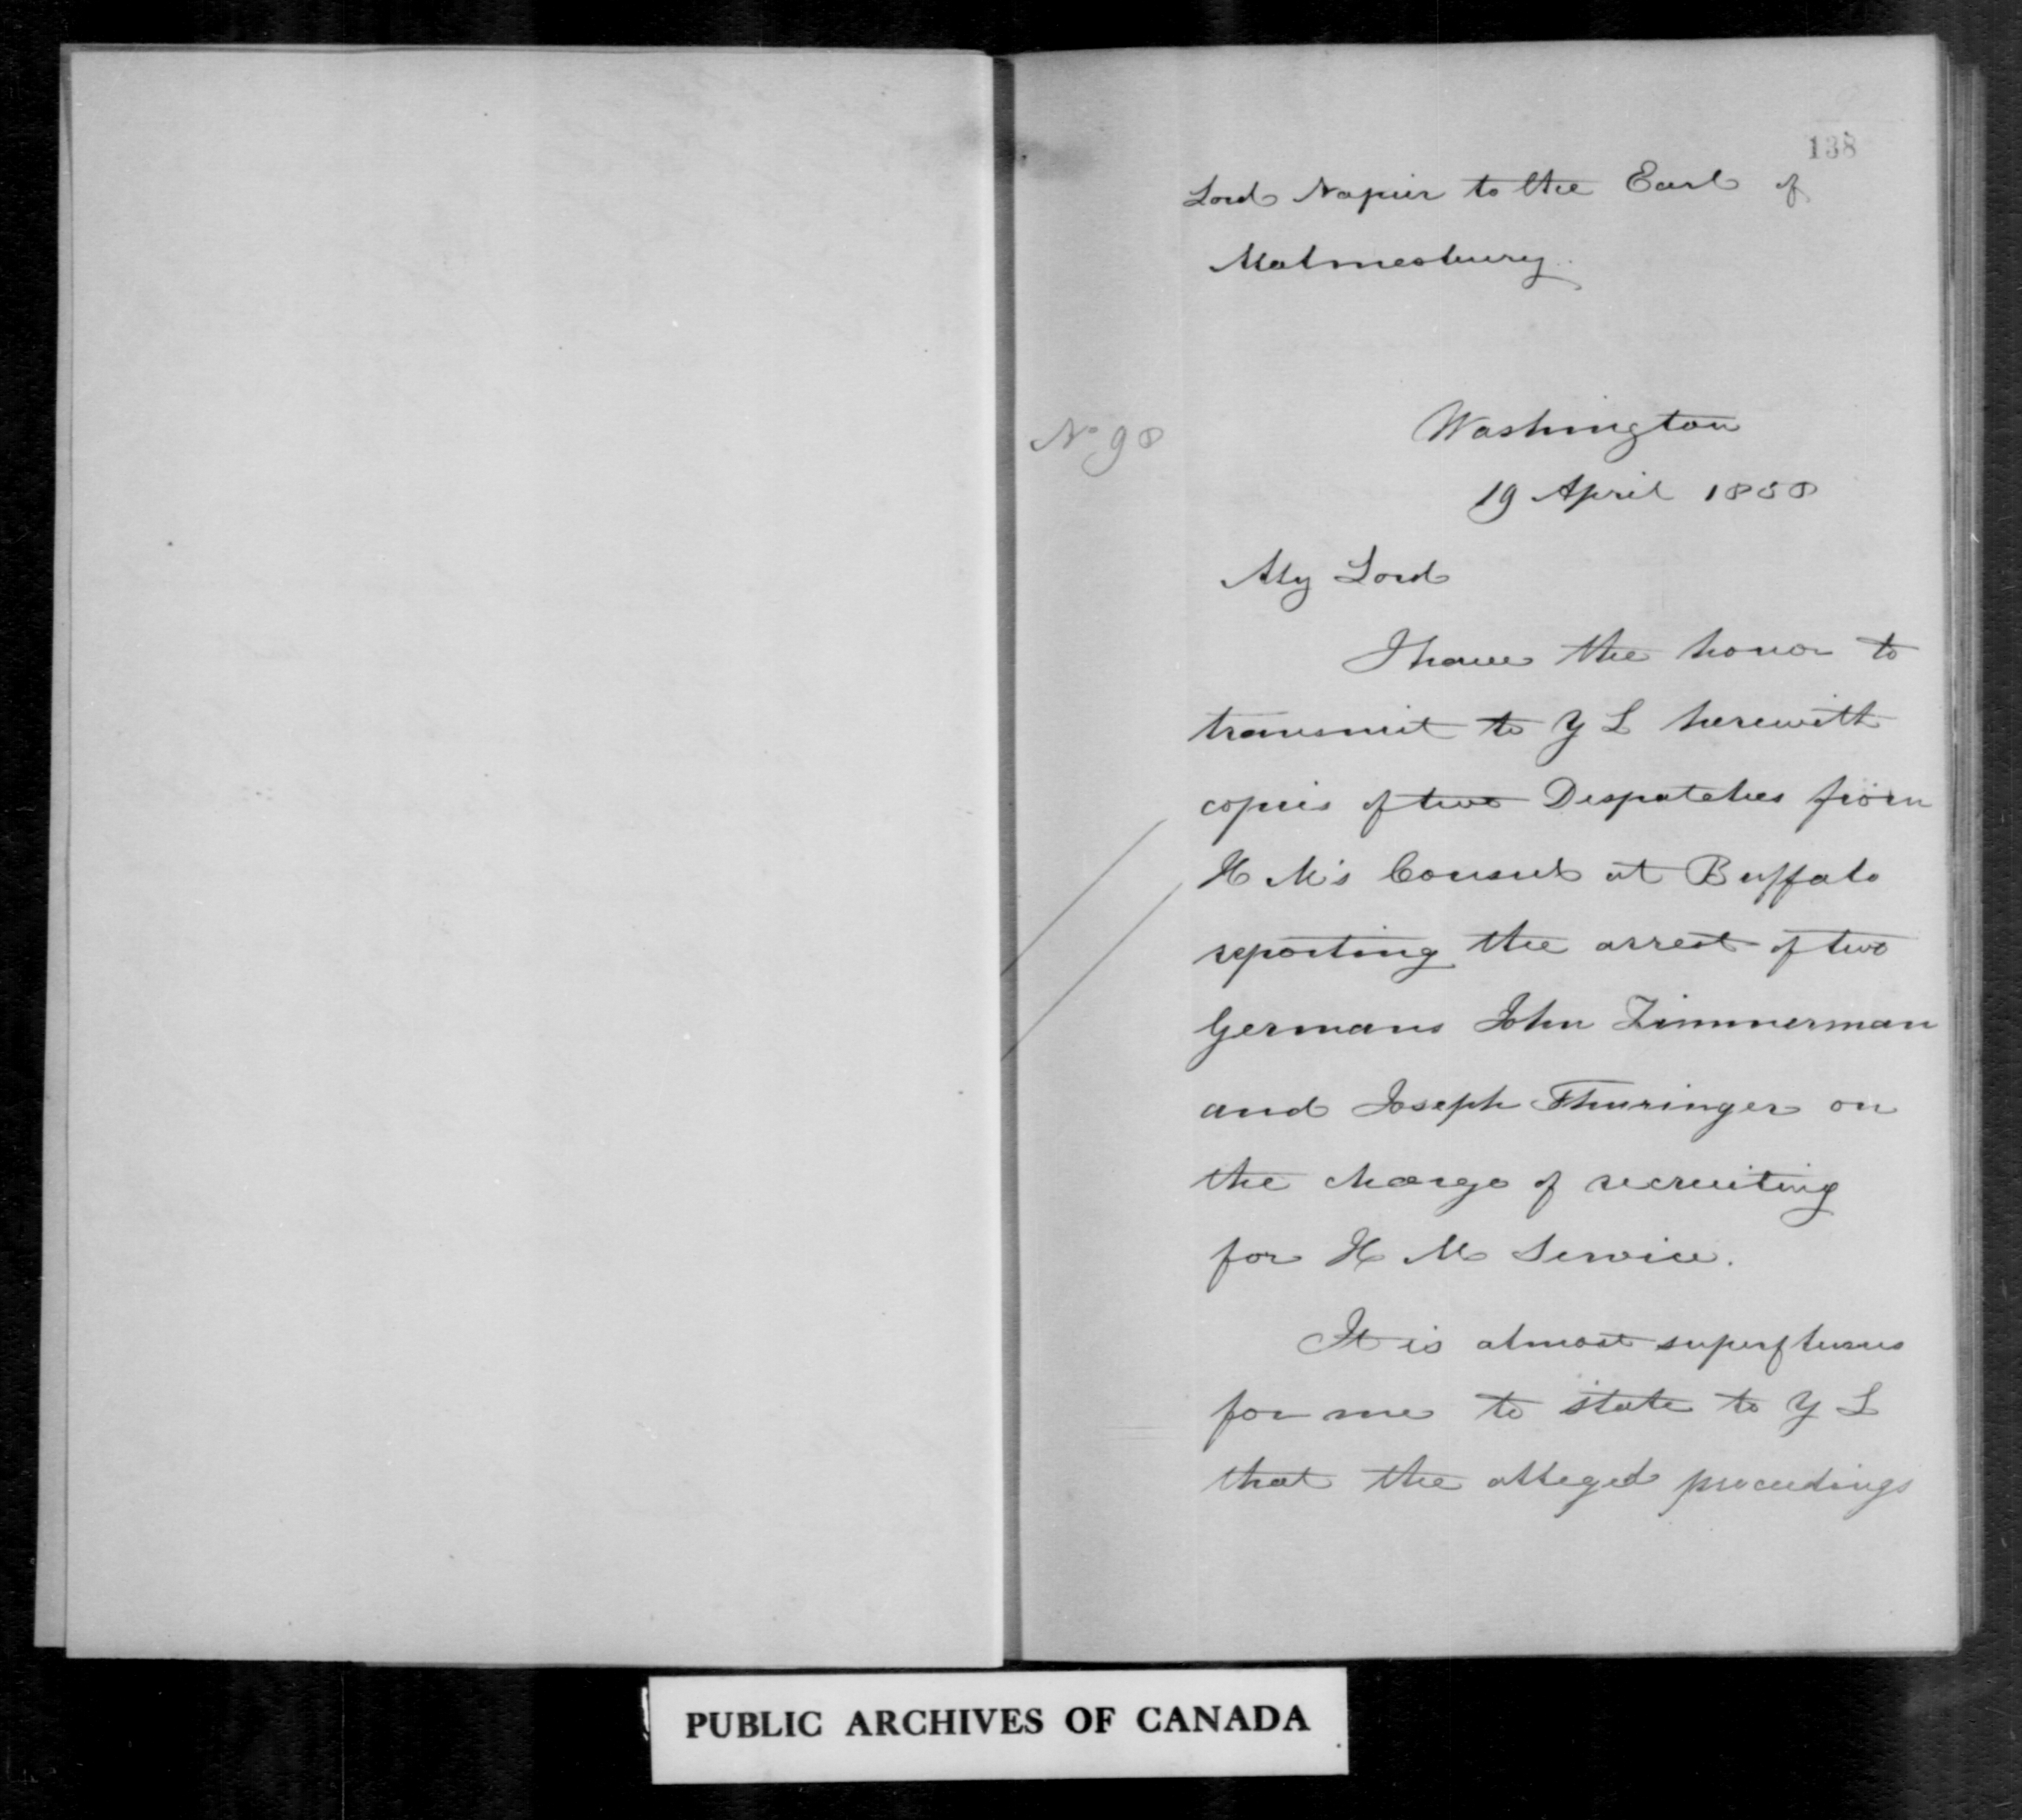 138
Lord Napier to the Earl of
Malmesbury.
No 98
Washington
19 April 1858
My Lord
I have the honor to
transmit to Y L herewith
copies of two Despatches from
H M's Consul at Buffalo
reporting the arrest of two
Germans John Zimmerman
and Joseph Thuringer on
the charge of recruiting
for H M Service.
It is almost superfluous
for me to state to Y L
that the alleged proceedings
PUBLIC ARCHIVES OF CANADA